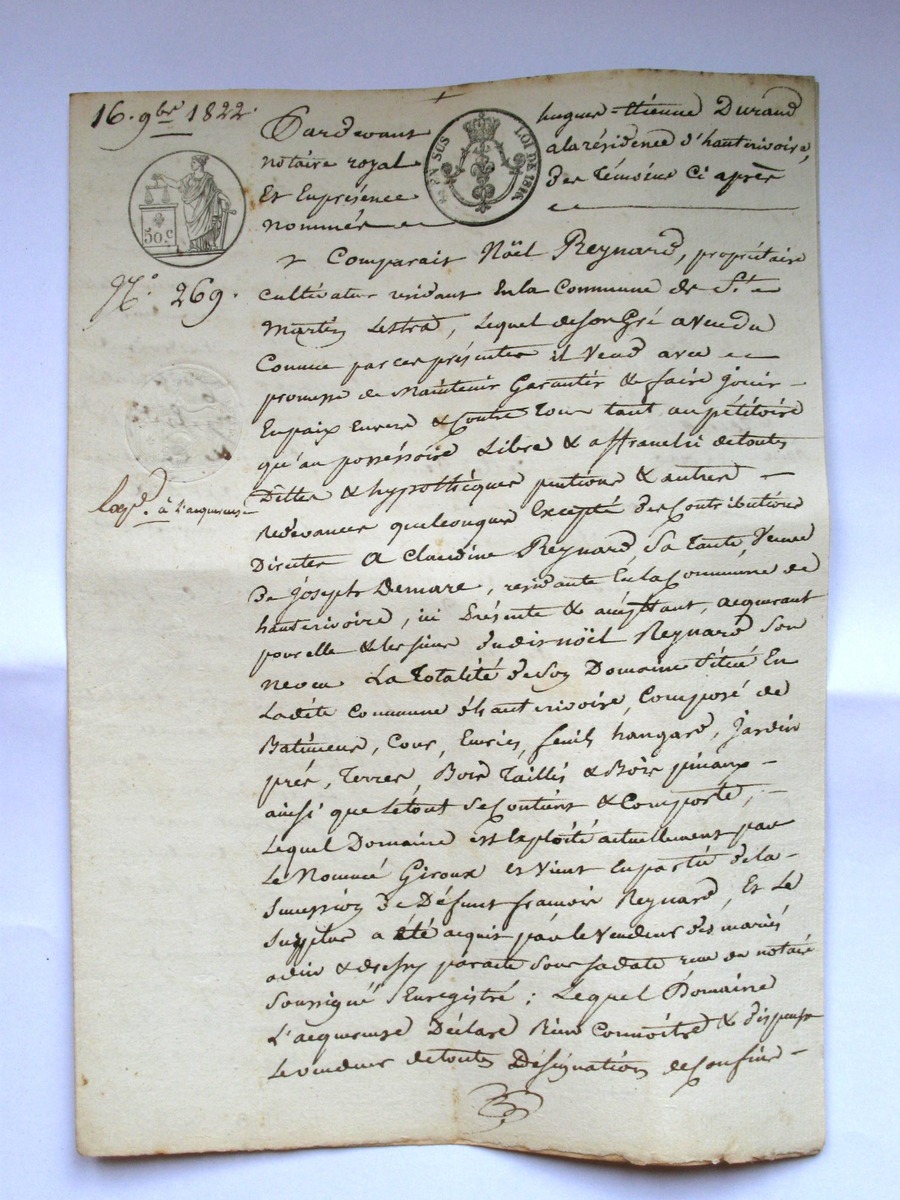 16. 9bre 1822.
Pardevant hugues-Etienne Durand
notaire royal a la résidence d'hauterivoire,
Et En présence des témoins Ci après
nommés
50 c
EN SUS LOI DE 1816
N.o 269.
Comparait Noël Reynard, propriétaire
Cultivateur residant En la Commune de St
Martin Lestra, Lequel de Son Gré a vendu
Comme par ces présentes il Vend avec
promesse de Maintenir Garantir & faire jouir
En paix Envers & Contre tous tant au pétitoire
qu'au posséssoire Libre & affranchi de toutes
Dettes & hypothèques pentions & autres
Expd. à l'acquereuse
redevances quelconques Excepté des Contributions
Directes A Claudine Reynard, Sa tante, Veuve
De Joseph Demare, residante En la Commune de
hauterivoire, ici Présente & acéptant, acquerant
pour elle & les siens dudit noël Reynard Son
neveu La Totalité de Son Domaine Situé En
Ladite Commune d'hauterivoire, Composé de
Batimens, Cour, Ecuries, fenils, hangard, Jardin
prés, Terres, Bois Taillis & Bois pinaux
ainsi que Le tout Se Contient & Comporte;
Lequel Domaine est Exploité actuellement par
Le Nommé Giroux et Vient En partie de la
Succession de Défunt francois Reynard, Et Le
Surplus a été acquis par le Vendeur des mariés
par acte Sous Sa date recu du notaire
Soussigné Enregistré; Lequel Domaine
L'acquereuse Déclare Bien Connoitre & dispense
Le vendeur de toute Désignation de Confins